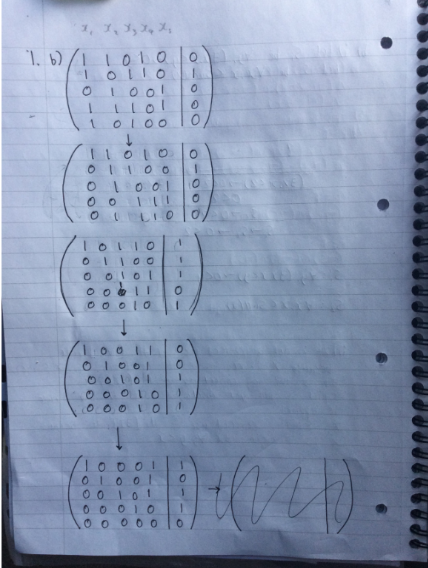 x₁ x₂ x₃ x₄ x₅
1. b) ( 1 1 0 1 0 | 0 )
1 0 1 1 0 | 1
0 1 0 0 1 | 0
1 1 1 0 1 | 0
1 0 1 0 0 | 0
↓
( 1 1 0 1 0 | 0 )
0 1 1 0 0 | 1
0 1 0 0 1 | 0
0 0 1 1 1 | 0
0 1 1 1 0 | 0
↓
( 1 0 1 1 0 | 1 )
0 1 1 0 0 | 1
0 0 1 0 1 | 1
0 0 1 1 | 0
0 0 0 1 0 | 1
↓
( 1 0 0 1 1 | 0 )
0 1 0 0 1 | 0
0 0 1 0 1 | 1
0 0 0 1 0 | 1
0 0 0 1 0 | 1
↓
( 1 0 0 0 1 | 1 ) →
0 1 0 0 1 | 0
0 0 1 0 1 | 1
0 0 0 1 0 | 1
0 0 0 0 0 | 0